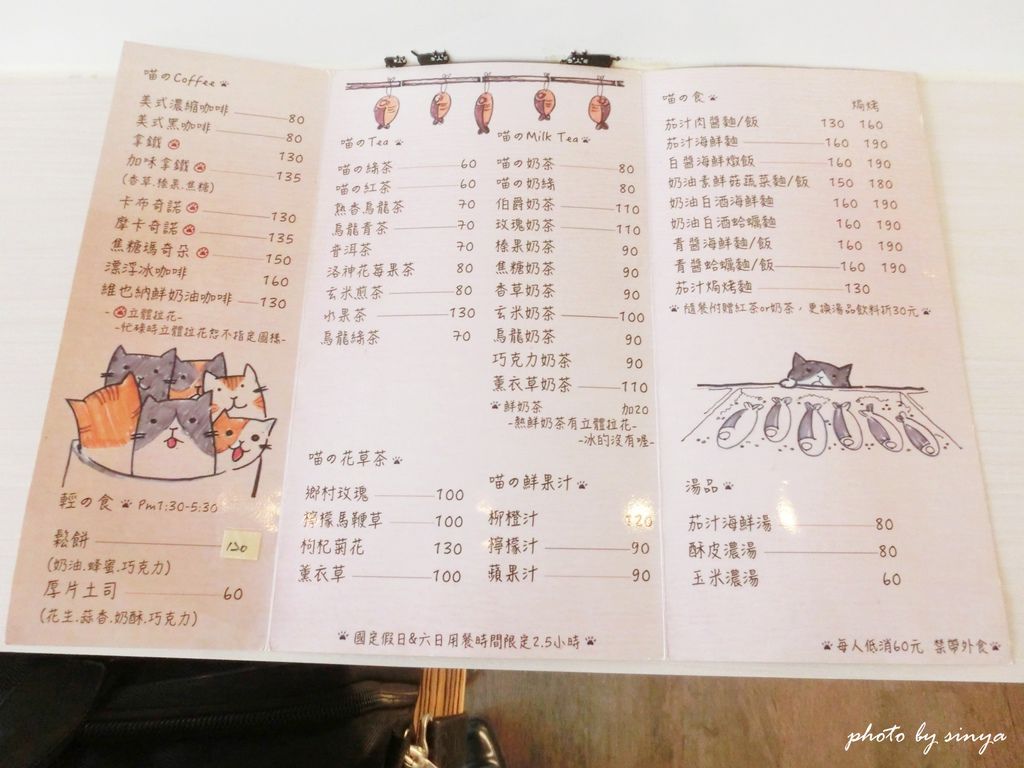 喵のCoffee
美式濃縮咖啡 80
美式黑咖啡 80
拿鐵 130
加味拿鐵 135
(香草.榛果.焦糖)
卡布奇諾 130
摩卡奇諾 135
焦糖瑪奇朵 150
漂浮冰咖啡 160
維也納鮮奶油咖啡 130
-立體拉花-
-忙碌時立體拉花恕不指定圖樣-
輕の食 Pm1:30-5:30
鬆餅 120
(奶油.蜂蜜.巧克力)
厚片土司 60
(花生.蒜香.奶酥.巧克力)
喵のTea
喵の綠茶 60
喵の紅茶 60
熟香烏龍茶 70
烏龍青茶 70
普洱茶 70
洛神花莓果茶 80
玄米煎茶 80
水果茶 130
烏龍綠茶 70
喵の花草茶
鄉村玫瑰 100
檸檬馬鞭草 100
枸杞菊花 130
薰衣草 100
喵のMilk Tea
喵の奶茶 80
喵の奶綠 80
伯爵奶茶 110
玫瑰奶茶 110
榛果奶茶 90
焦糖奶茶 90
香草奶茶 90
玄米奶茶 100
烏龍奶茶 90
巧克力奶茶 90
薰衣草奶茶 110
鮮奶茶 加20
-熱鮮奶茶有立體拉花-
-冰的沒有喔-
喵の鮮果汁
柳橙汁 120
檸檬汁 90
蘋果汁 90
國定假日&六日用餐時間限定2.5小時
喵の食 焗烤
茄汁肉醬麵/飯 130 160
茄汁海鮮麵 160 190
白醬海鮮燉飯 160 190
奶油素鮮菇蔬菜麵/飯 150 180
奶油白酒海鮮麵 160 190
奶油白酒蛤蠣麵 160 190
青醬海鮮麵/飯 160 190
青醬蛤蠣麵/飯 160 190
茄汁焗烤麵 130
隨餐附贈紅茶or奶茶，更換湯品飲料折30元
湯品
茄汁海鮮湯 80
酥皮濃湯 80
玉米濃湯 60
每人低消60元 禁帶外食
photo by sinya